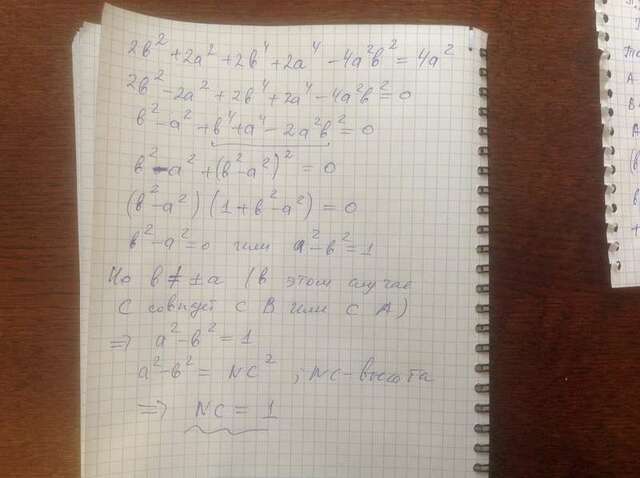 2b² + 2a² + 2b⁴ + 2a⁴ - 4a²b² = 4a²
2b² - 2a² + 2b⁴ + 2a⁴ - 4a²b² = 0
b² - a² + b⁴ + a⁴ - 2a²b² = 0
b² - a² + (b² - a²)² = 0
(b² - a²) (1 + b² - a²) = 0
b² - a² = 0 или a² - b² = 1
Но b ≠ ±a (в этом случае
C совпадёт с B или с A)
⇒ a² - b² = 1
a² - b² = NC² ; NC - высота
⇒ NC = 1